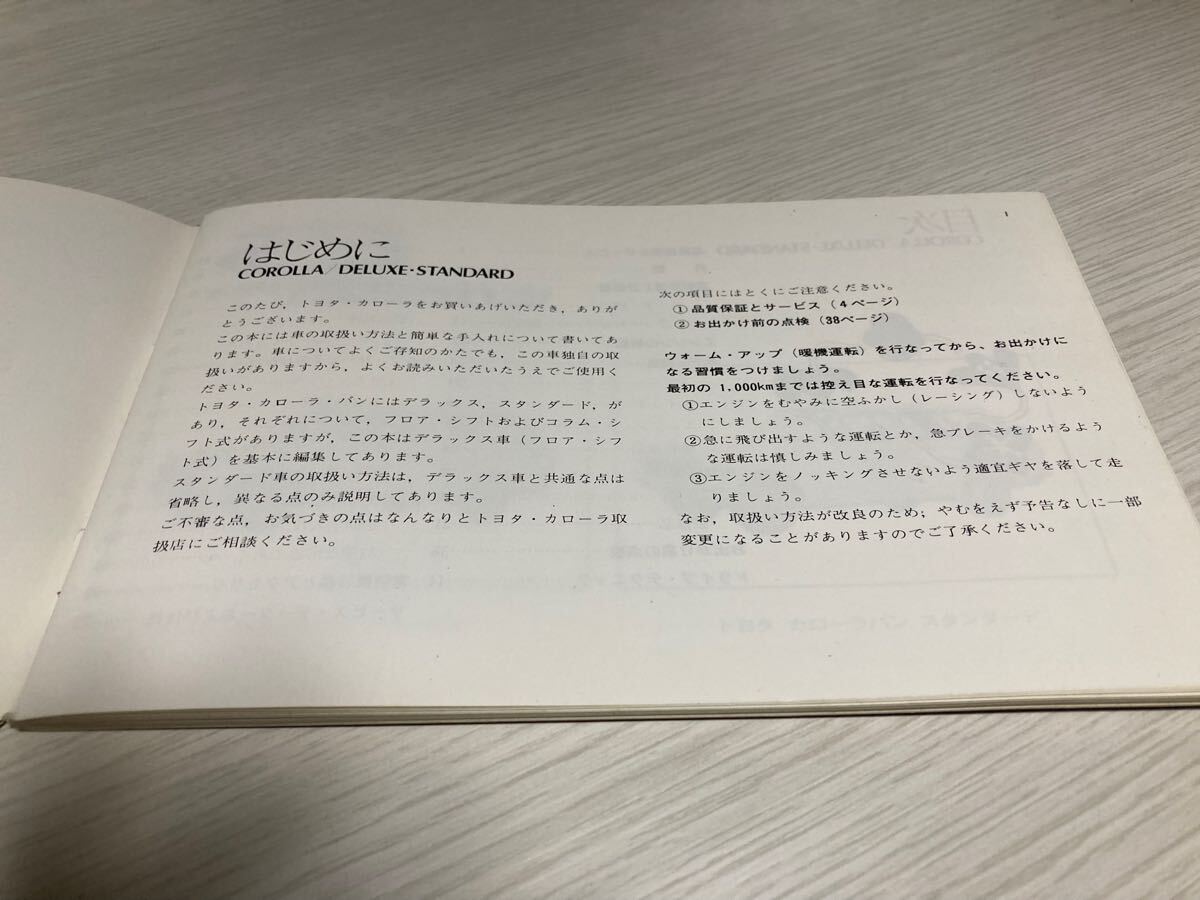 はじめに
COROLLA/DELUXE·STANDARD
このたび，トヨタ・カローラをお買いあげいただき，ありが
とうございます。
この本には車の取扱い方法と簡単な手入れについて書いてあ
ります。車についてよくご存知のかたでも，この車独自の取
扱いがありますから，よくお読みいただいたうえでご使用く
ださい。
トヨタ・カローラ・バンにはデラックス，スタンダード，が
あり，それぞれについて，フロア・シフトおよびコラム・シ
フト式がありますが，この本はデラックス車（フロア・シフ
ト式）を基本に編集してあります。
スタンダード車の取扱い方法は，デラックス車と共通な点は
省略し，異なる点のみ説明してあります。
ご不審な点，お気づきの点はなんなりとトヨタ・カローラ取
扱店にご相談ください。
1
次の項目にはとくにご注意ください。
①品質保証とサービス（4ページ）
②お出かけ前の点検（38ページ）
ウォーム・アップ（暖機運転）を行なってから、お出かけに
なる習慣をつけましょう。
最初の 1,000kmまでは控え目な運転を行なってください。
①エンジンをむやみに空ふかし（レーシング）しないよう
にしましょう。
②急に飛び出すような運転とか，急ブレーキをかけるよう
な運転は慎しみましょう。
③エンジンをノッキングさせないよう適宜ギヤを落して走
りましょう。
なお，取扱い方法が改良のため；やむをえず予告なしに一部
変更になることがありますのでご了承ください。